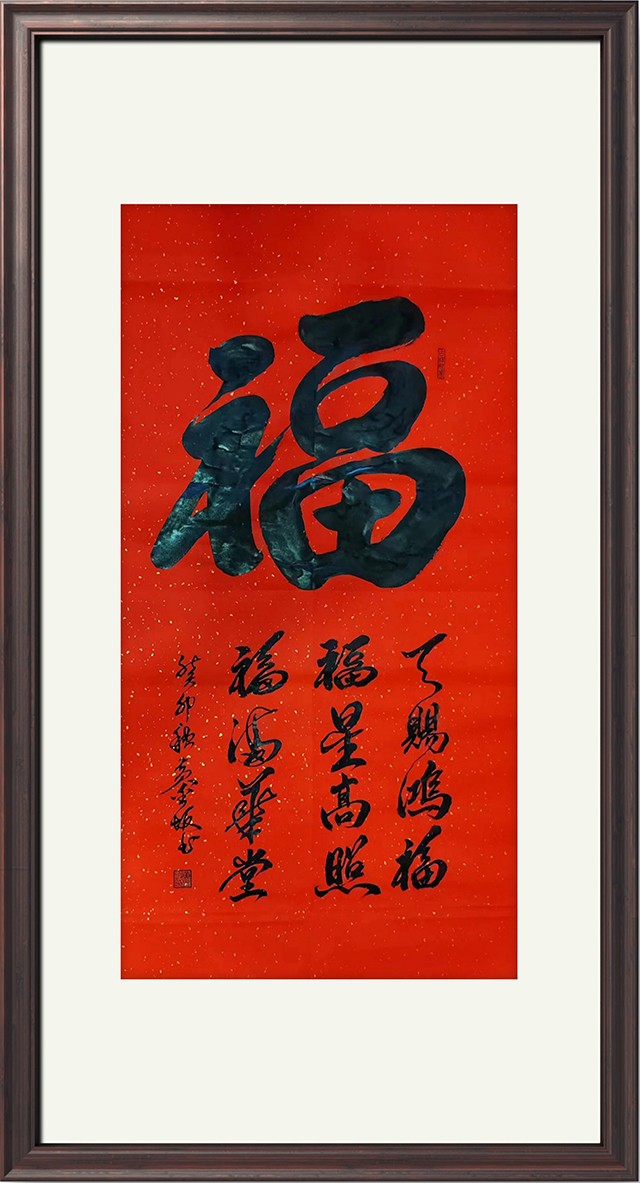 福
天赐鸿福
福星高照
福满华堂
癸卯秋